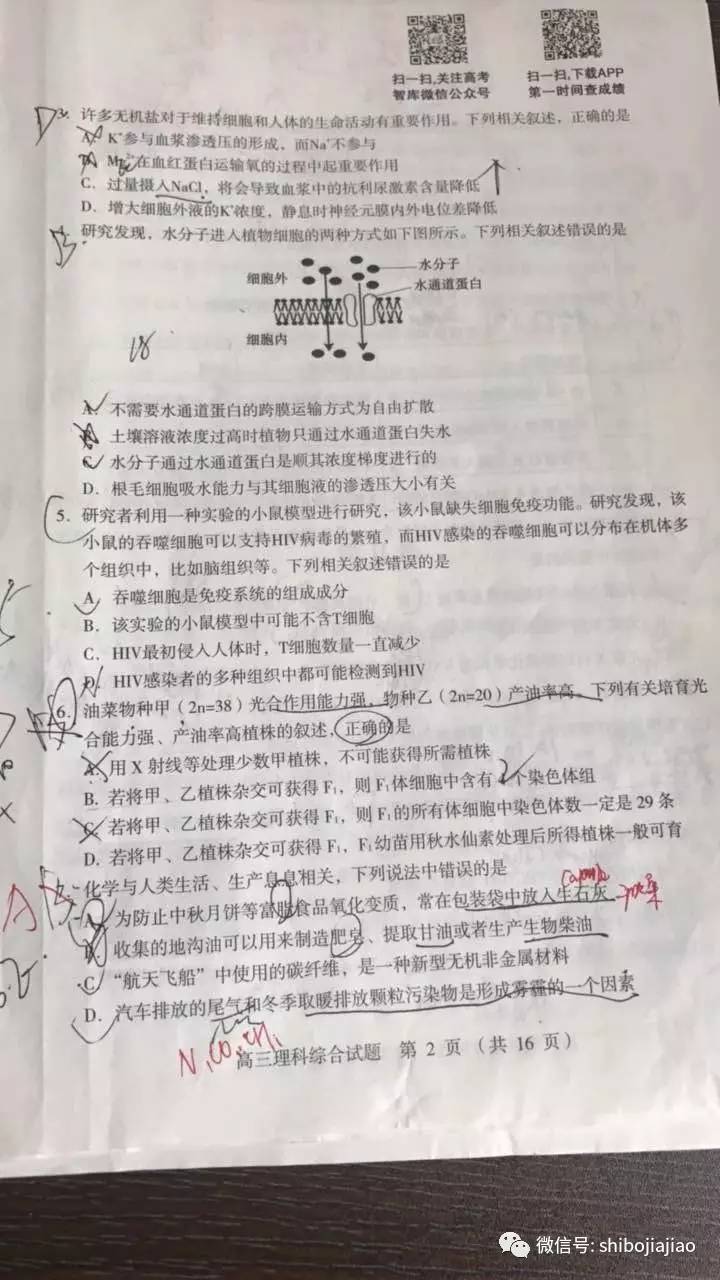 扫一扫,关注高考 扫一扫,下载APP
智库微信公众号 第一时间查成绩
D
3. 许多无机盐对于维持细胞和人体的生命活动有重要作用。下列相关叙述，正确的是
A. K⁺参与血浆渗透压的形成，而Na⁺不参与
在血红蛋白运输氧的过程中起重要作用
C. 过量摄入NaCl，将会导致血浆中的抗利尿激素含量降低
D. 增大细胞外液的K⁺浓度，静息时神经元膜内外电位差降低
B
4. 研究发现，水分子进入植物细胞的两种方式如下图所示。下列相关叙述错误的是
细胞外 水分子
水通道蛋白
细胞内
18
A. 不需要水通道蛋白的跨膜运输方式为自由扩散
B. 土壤溶液浓度过高时植物只通过水通道蛋白失水
C. 水分子通过水通道蛋白是顺其浓度梯度进行的
D. 根毛细胞吸水能力与其细胞液的渗透压大小有关
5. 研究者利用一种实验的小鼠模型进行研究，该小鼠缺失细胞免疫功能。研究发现，该
小鼠的吞噬细胞可以支持HIV病毒的繁殖，而HIV感染的吞噬细胞可以分布在机体多
个组织中，比如脑组织等。下列相关叙述错误的是
A. 吞噬细胞是免疫系统的组成成分
B. 该实验的小鼠模型中可能不含T细胞
C. HIV最初侵入人体时，T细胞数量一直减少
D. HIV感染者的多种组织中都可能检测到HIV
6. 油菜物种甲（2n=38）光合作用能力强，物种乙（2n=20）产油率高。下列有关培育光
合能力强、产油率高植株的叙述，正确的是
A. 用 X 射线等处理少数甲植株，不可能获得所需植株
B. 若将甲、乙植株杂交可获得 F₁，则 F₁体细胞中含有 个染色体组
2
C. 若将甲、乙植株杂交可获得 F₁，则 F₁的所有体细胞中染色体数一定是 29 条
D. 若将甲、乙植株杂交可获得 F₁，F₁幼苗用秋水仙素处理后所得植株一般可育
A
7. 化学与人类生活、生产息息相关，下列说法中错误的是
A. 为防止中秋月饼等富脂食品氧化变质，常在包装袋中放入生石灰
B. 收集的地沟油可以用来制造肥皂、提取甘油或者生产生物柴油
C. “航天飞船”中使用的碳纤维，是一种新型无机非金属材料
D. 汽车排放的尾气和冬季取暖排放颗粒污染物是形成雾霾的一个因素
高三理科综合试题 第 2 页（共 16 页）
微信号: shibojiajiao